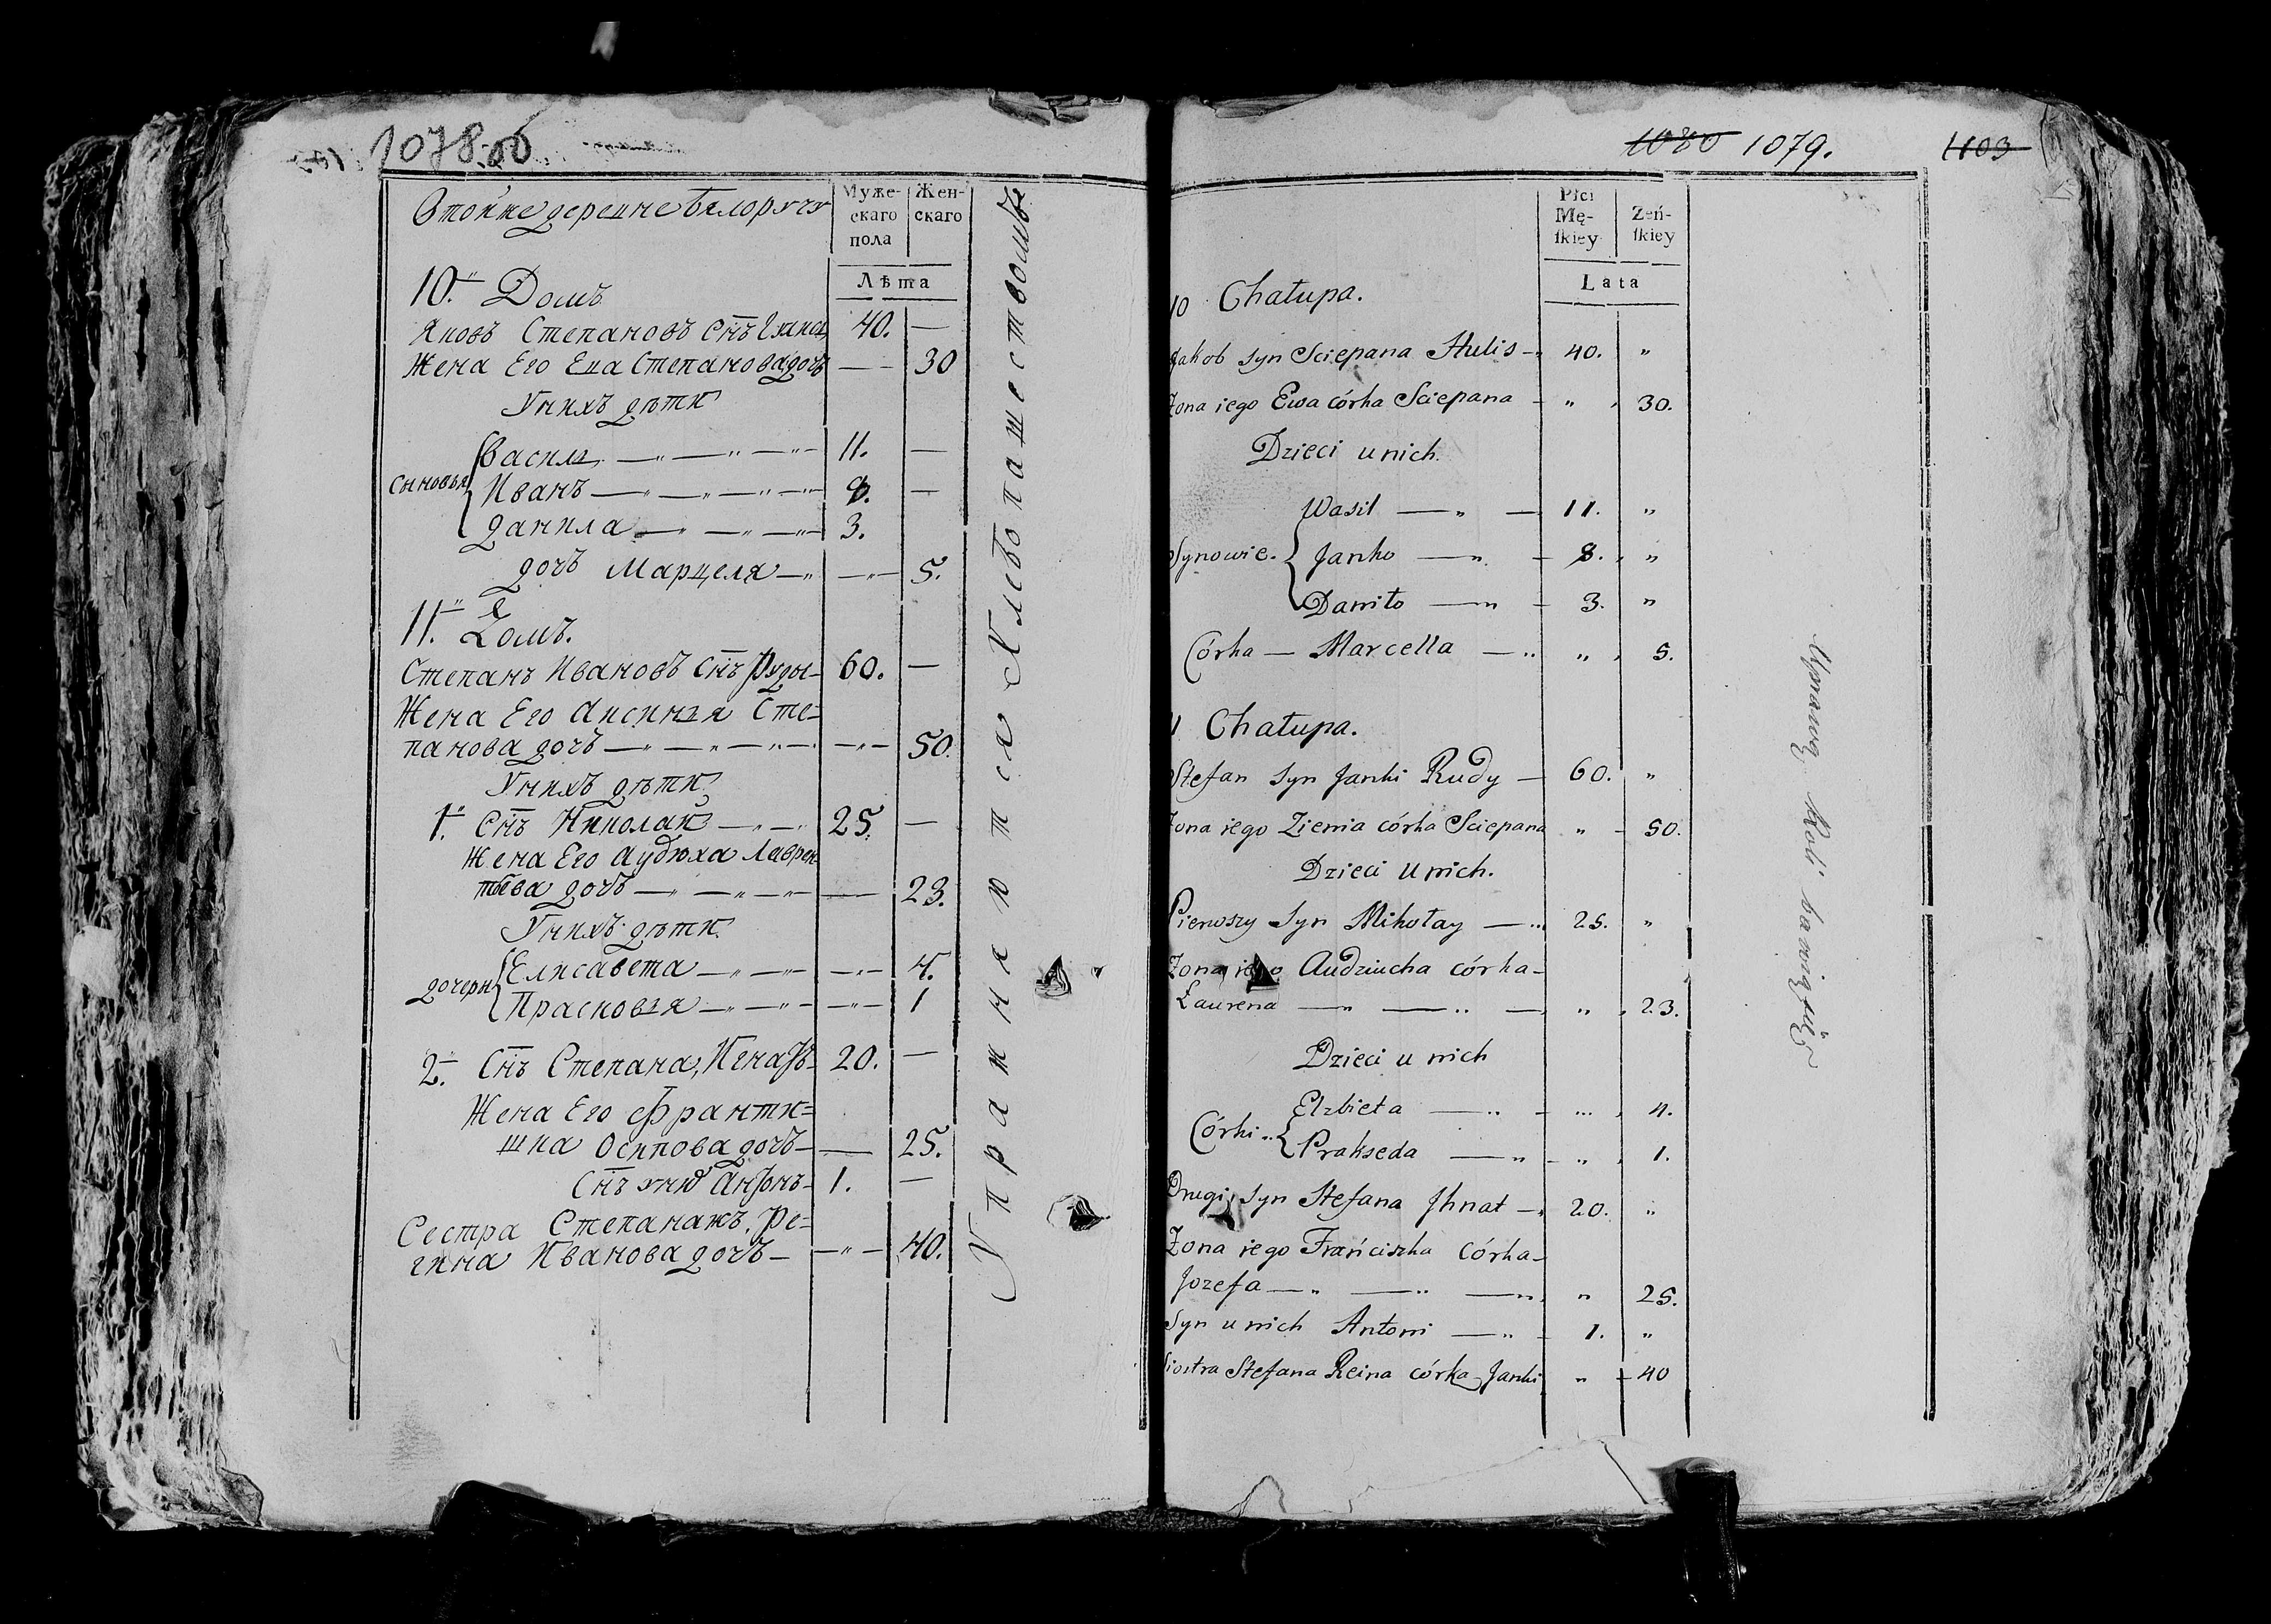 1078 об
Втойже деревне Белоручу
Муже-
скаго
пола
Жен-
скаго
Лѣта
10. Домъ
Яковъ Степановъ Снъ 40. —
Жена Его Ева Степанова дочь — 30
Унихъ дѣти
Сыновья
Василь — " — " — " 11. —
Иванъ — " — " — " 8. —
Данила — " — " — " 3.
дочь Марцеля — " — " — 5.
11. Домъ.
Степанъ Ивановъ Снъ Руды — 60. —
Жена Его Аксинья Сте=
панова дочь — " — " — " — " — 50.
Унихъ дѣти
1. Снъ Николай — " — 25. —
Жена Его Аудюха Лаврен
тьева дочь — " — " — " — 23.
Унихъ дѣти
дочери
Елисавета — " — " — " — 4.
Прасковья — " — " — " — 1
2. Снъ Степана, Игнатъ — 20. —
Жена Его Франти=
шка Осипова дочь — — 25.
Снъ унихъ Антонъ — 1. —
Сестра Степанажъ, Ре=
гина Иванова дочь — — " — 40.
Упражняются Хлебопашествомъ
1080 1079.
1103
Płci
Mę-
ſkiey
Zeń-
ſkiey
Lata
10 Chałupa.
Jakob syn Sciepana Hulis — 40. "
Zona iego Ewa córka Sciepana — " 30.
Dzieci u nich.
Wasil — " — 11. "
Synowie. Janko — " — 8. "
Daniło — " — 3. "
Córka — Marcella — " " 5.
11 Chałupa.
Stefan syn Janki Rudy — 60. "
Zona iego Zienia córka Sciepana " — 50.
Dzieci u nich.
Pierwszy syn Mikołay — " 25. "
Zona iego Audziucha córka —
Łaurena — " — " — " 23.
Dzieci u nich
Elzbieta — " — " 4.
Córki
Prakseda — " — " 1.
Drugi syn Stefana Jhnat — 20. "
Zona iego Franciszka córka —
Jozefa — " — " — " " 25.
Syn u nich Antoni — " — 1. "
Siostra Stefana Reina córka Janki " — 40
Uprawą Roli bawią się